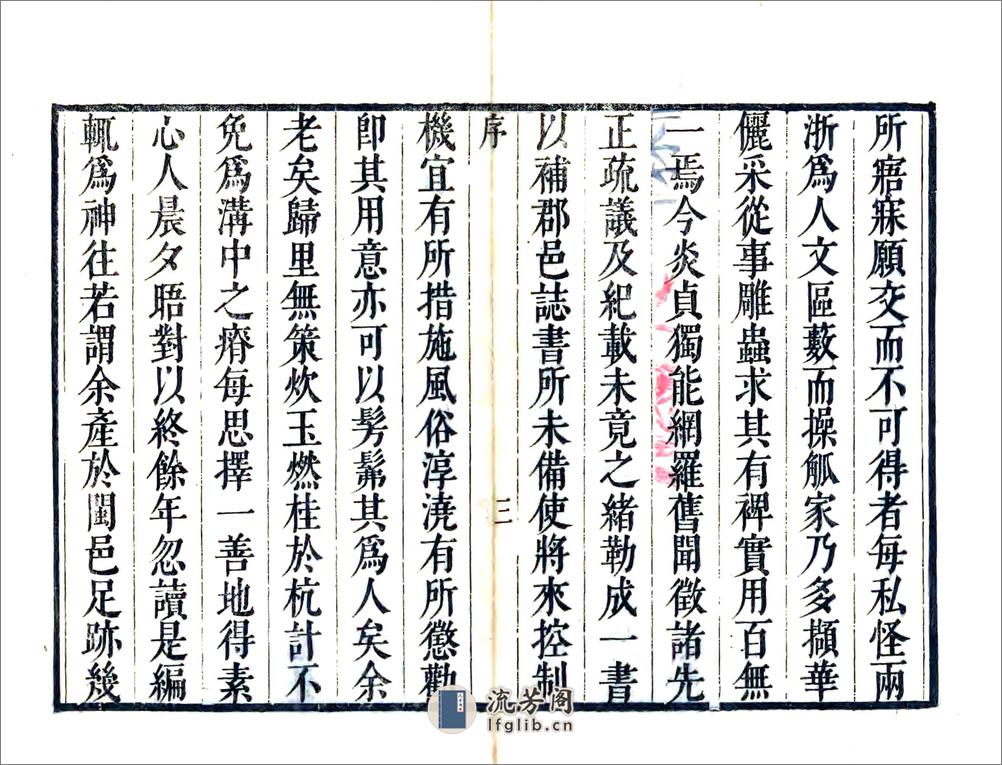 所寤寐願交而不可得者每私怪兩
浙爲人文區藪而操觚家乃多擷華
儷采從事雕蟲求其有裨實用百無
一焉今炎貞獨能網羅舊聞徵諸先
正疏議及紀載未竟之緒勒成一書
以補郡邑誌書所未備使將來控制
序 三
機宜有所措施風俗淳澆有所懲勸
卽其用意亦可以髣髴其爲人矣余
老矣歸里無策炊玉燃桂於杭計不
免爲溝中之瘠每思擇一善地得素
心人晨夕晤對以終餘年忽讀是編
輒爲神往若謂余產於閩邑足跡幾
流芳阁
lfglib.cn